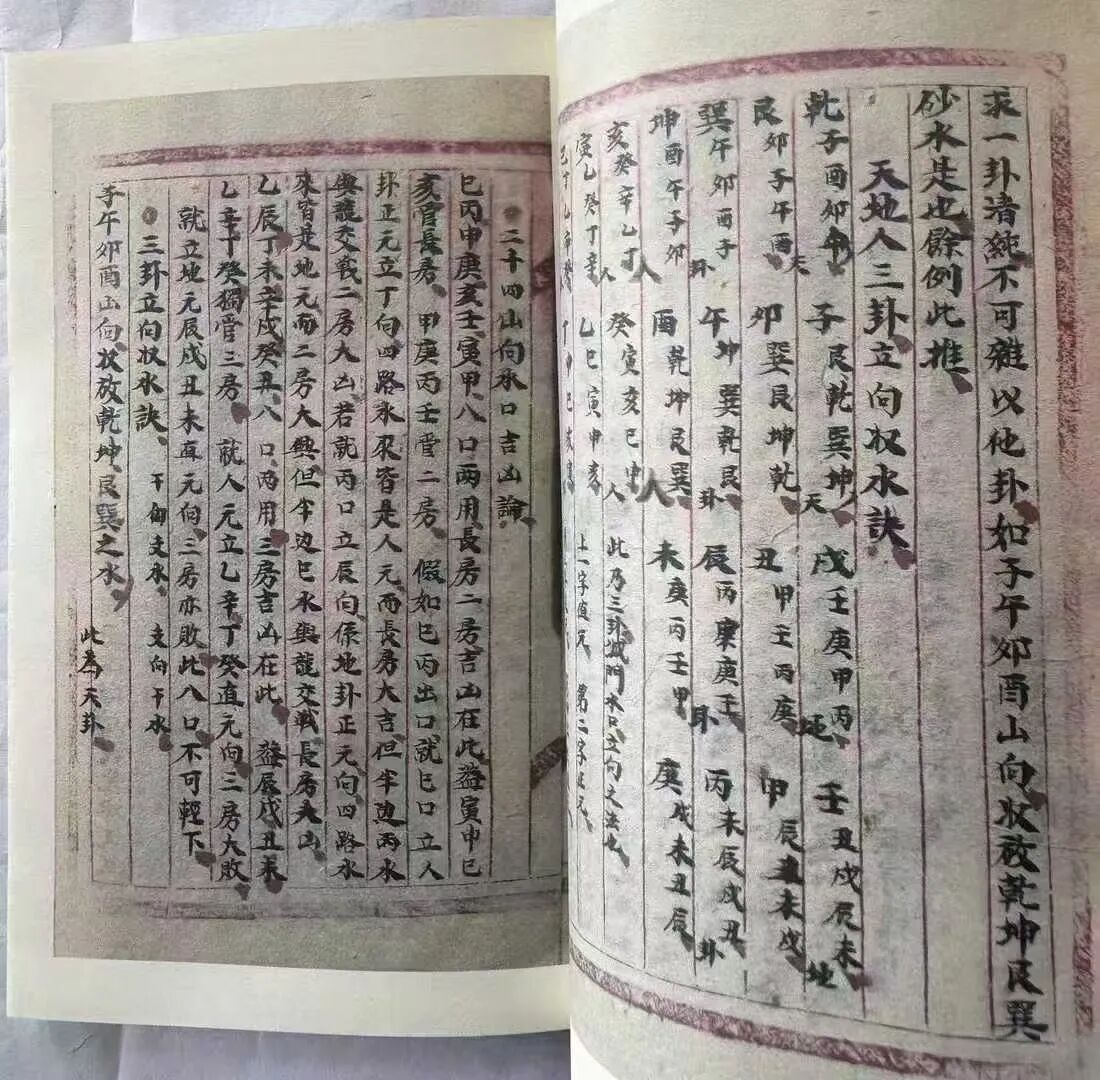 求一卦清純不可雜以他卦如子午卯酉山向收放乾坤艮巽
砂水是也餘例此推
天地人三卦立向收水訣
乾子酉卯午天 子艮乾巽坤天 戌壬庚甲丙地 壬丑戌辰未地
艮卯子午酉 卯巽艮坤乾 丑甲壬丙庚 甲辰丑未戌
巽午卯酉子卦 午坤巽乾艮卦 辰丙庚壬卦 丙未辰戌丑卦
坤酉午子卯 酉乾坤艮巽 未庚丙壬甲 庚戌未丑辰
亥癸辛乙丁人 癸寅亥巳申人 此乃三卦城門水口立向之法也
寅乙癸丁辛 乙巳寅申亥 上一字值元 第二字正元
二十四山向水口吉凶論
巳丙申庚亥壬寅甲八口兩用長房二房吉凶在此益寅申巳
亥管長房 甲庚丙壬管二房 假如巳丙出口就巳口立人
卦正元立丁向四路水來皆是人元而長房大吉但半边丙水
與龍交战二房大凶若就丙口立辰向係地卦正元向四路水
來皆是地元而二房大興但半边巳水與龍交戰長房大凶
乙辰丁未辛戌癸丑八口兩用三房吉凶在此 益辰戌丑未
乙辛丁癸獨管三房 就人元立乙辛丁癸直元向三房大敗
就立地元辰戌丑未直元向三房亦敗此八口不可輕下
三卦立向收水訣 干向支水 支向干水
子午卯酉山向收放乾坤艮巽之水 此為天卦